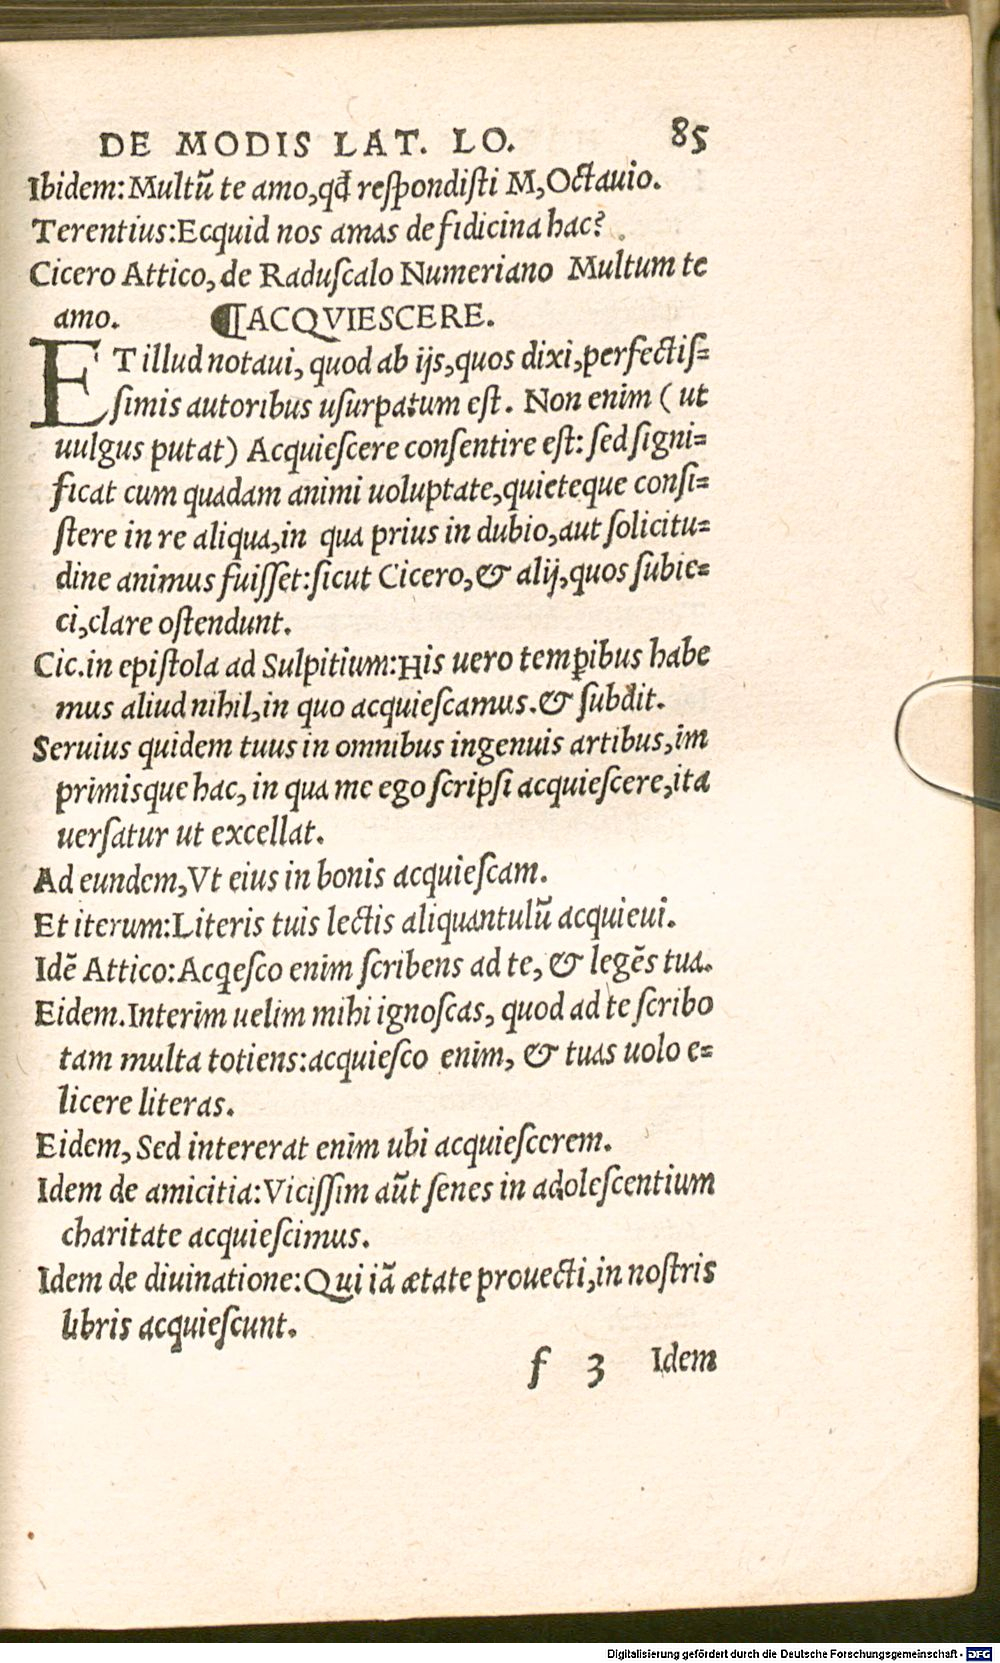 DE MODIS LAT. LO. 85
Ibidem:Multū te amo,qđ reſpondiſti M,Octauio.
Terentius:Ecquid nos amas de fidicina hac?
Cicero Attico, de Raduſcalo Numeriano Multum te
amo. ¶ACQVIESCERE.
ET illud notaui, quod ab ijs,quos dixi,perfectiſ=
ſimis autoribus uſurpatum eſt. Non enim ( ut
uulgus putat) Acquieſcere conſentire eſt: ſed ſigni=
ficat cum quadam animi uoluptate,quieteque conſi=
ſtere in re aliqua,in qua prius in dubio,aut ſolicitu=
dine animus fuiſſet:ſicut Cicero,& alij,quos ſubie=
ci,clare oſtendunt.
Cic.in epiſtola ad Sulpitium:His uero temꝑibus habe
mus aliud nihil,in quo acquieſcamus.& ſubdit.
Seruius quidem tuus in omnibus ingenuis artibus,im
primisque hac, in qua me ego ſcripſi acquieſcere,ita
uerſatur ut excellat.
Ad eundem,Vt eius in bonis acquieſcam.
Et iterum:Literis tuis lectis aliquantulū acquieui.
Idē Attico:Acqeſco enim ſcribens ad te, & legēs tua.
Eidem.Interim uelim mihi ignoſcas, quod ad te ſcribo
tam multa totiens:acquieſco enim, & tuas uolo e=
licere literas.
Eidem, Sed intererat enim ubi acquieſcerem.
Idem de amicitia:Viciſſim aūt ſenes in adoleſcentium
charitate acquieſcimus.
Idem de diuinatione:Qui iā ætate prouecti,in noſtris
libris acquieſcunt.
f 3 Idem
Digitalisierung gefördert durch die Deutsche Forschungsgemeinschaft - DFG